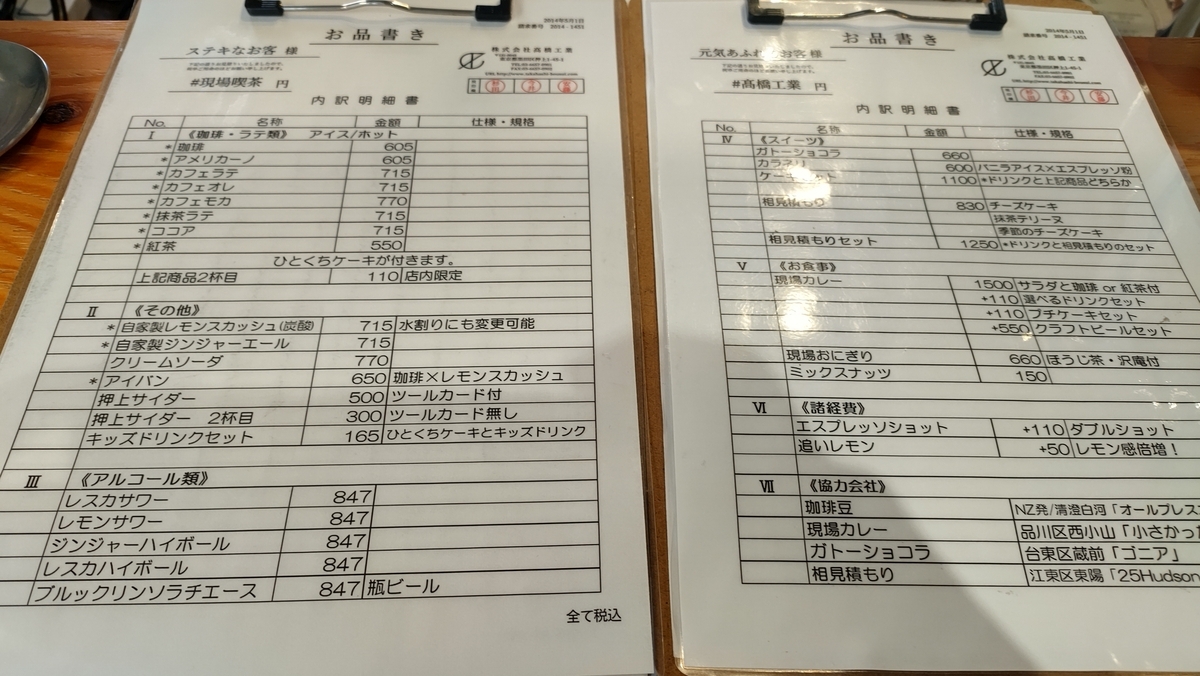 お品書き
2014年5月1日
請求番号 2014-1431
ステキなお客 様
#現場喫茶 円
株式会社高橋工業
内訳明細書
No. 名称 金額 仕様・規格
Ⅰ 《珈琲・ラテ類》 アイス/ホット
*珈琲 605
*アメリカーノ 605
*カフェラテ 715
*カフェオレ 715
*カフェモカ 770
*抹茶ラテ 715
*ココア 715
*紅茶 550
ひとくちケーキが付きます。
上記商品2杯目 110 店内限定
Ⅱ 《その他》
*自家製レモンスカッシュ(炭酸) 715 水割りにも変更可能
*自家製ジンジャーエール 715
クリームソーダ 770
*アイバン 650 珈琲×レモンスカッシュ
押上サイダー 500 ツールカード付
押上サイダー 2杯目 300 ツールカード無し
キッズドリンクセット 165 ひとくちケーキとキッズドリンク
Ⅲ 《アルコール類》
レスカサワー 847
レモンサワー 847
ジンジャーハイボール 847
レスカハイボール 847
ブルックリンソラチエース 847 瓶ビール
全て税込
お品書き
2014年5月1日
請求番号 2014-1431
元気あふれ お客 様
#髙橋工業 円
株式会社高橋工業
内訳明細書
No. 名称 金額 仕様・規格
Ⅳ 《スイーツ》
ガトーショコラ 660
カラネリ 600 バニラアイス×エスプレッソ粉
ケーキ ット 1100 *ドリンクと上記商品どちらか
相見積もり 830 チーズケーキ
抹茶テリーヌ
季節のチーズケーキ
相見積もりセット 1250 *ドリンクと相見積もりのセット
Ⅴ 《お食事》
現場カレー 1500 サラダと珈琲 or 紅茶付
+110 選べるドリンクセット
+110 プチケーキセット
+550 クラフトビールセット
現場おにぎり 660 ほうじ茶・沢庵付
ミックスナッツ 150
Ⅵ 《諸経費》
エスプレッソショット +110 ダブルショット
追いレモン +50 レモン感倍増！
Ⅶ 《協力会社》
珈琲豆 NZ発/清澄白河「オールプレス
現場カレー 品川区西小山「小さかった
ガトーショコラ 台東区蔵前「ゴニア」
相見積もり 江東区東陽「25Hudson